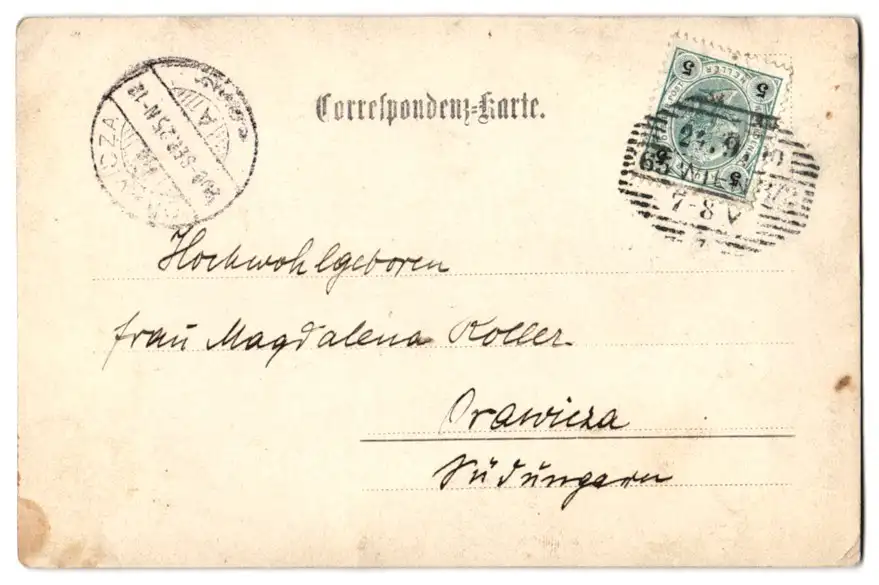 Correspondenz-Karte.
5 HELLER 5
5 5
24.
63
7-8 V
ICZA
A
SEP. 25 N-12
Hochwohlgeboren
Frau Magdalena Koller
Orawicza
Südungarn